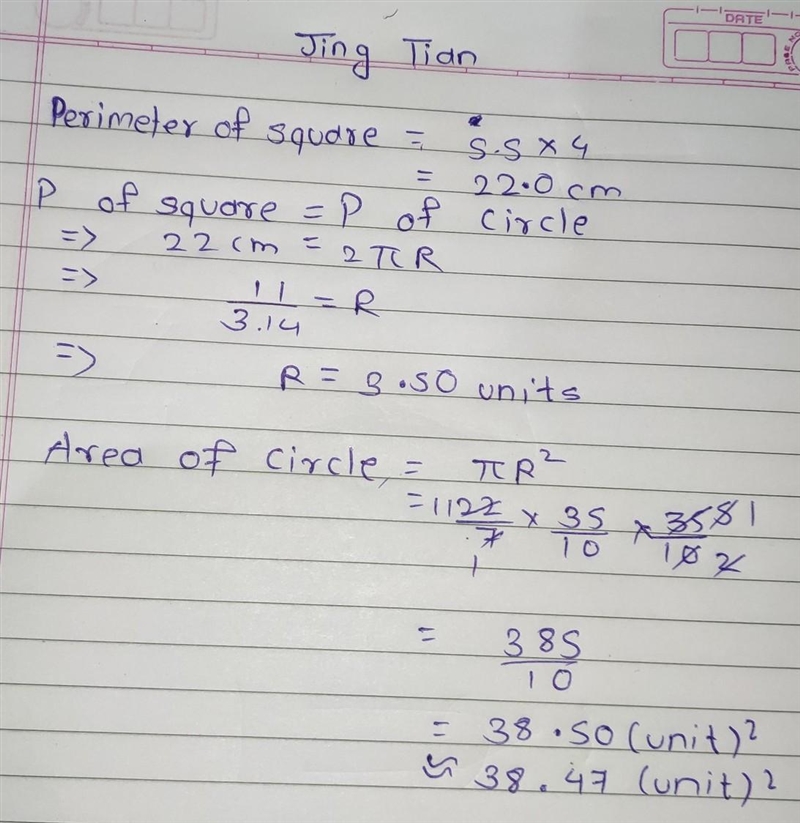 DATE
PAGE NO
Jing Tian
Perimeter of square = 5.5 × 4
= 22.0 cm
P of square = P of circle
=> 22 cm = 2πR
=> 11/3.14 = R
=> R = 3.50 units
Area of circle, = πR²
= 11 22/7 1 × 35/10 × 35 5 1/10 2
= 385/10
= 38.50 (unit)²
≈ 38.47 (unit)²